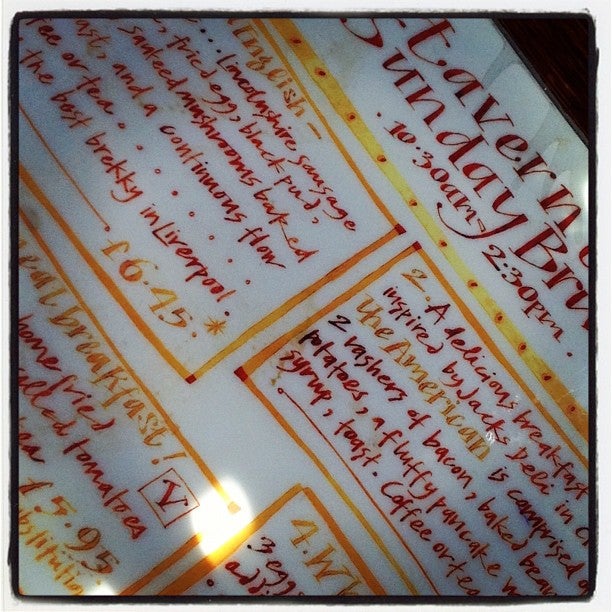 Tavern
Sunday
10:30am – 2:30pm.
English –
Lincolnshire sausage
, fried egg, black pud,
sauteed mushrooms baked
and a continuous flow
or tea
the best brekky in Liverpool.
£6.45. *
2. A delicious breakfast
inspired by Jacks Deli in
the American is comprised
2 rashers of bacon, baked
potatoes, a fluffy pancake
syrup, toast. Coffee or tea
breakfast!
home fried
tomatoes
V
£5.95
4.
3 eggs